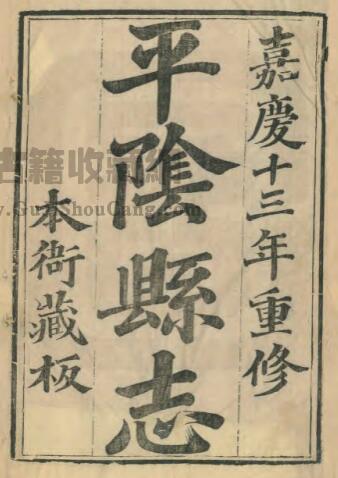 嘉慶十三年重修
平陰縣志
本衙藏板
古籍收藏網
www.GuJiShouCang.com